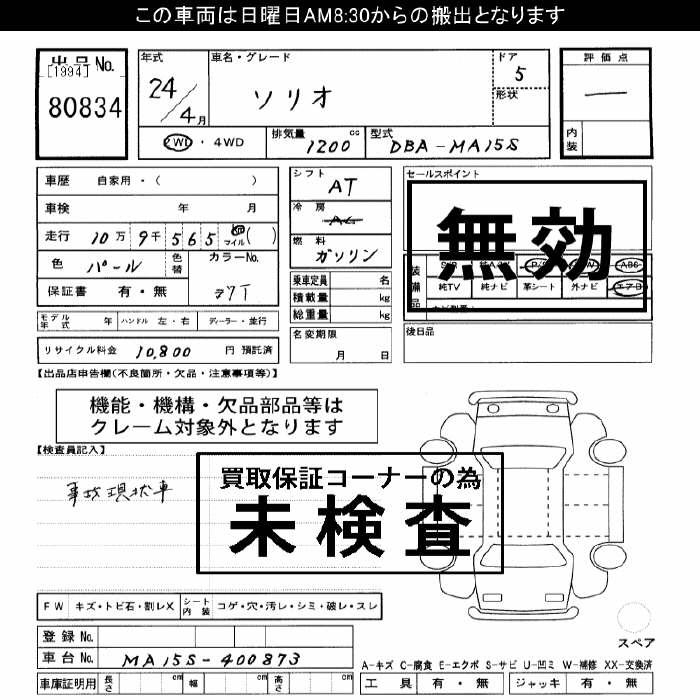 この車両は日曜日AM8:30からの搬出となります
出品No.
[1994]
80834
年式
24/4月
車名・グレード
ソリオ
ドア
5
形状
評価点
―
内装
2WD ・ 4WD
排気量
1200 cc
型式
DBA-MA15S
車歴 自家用・( )
車検 年 月
走行 10万 9千 565 マイル( )
色 パール
色替
カラーNo.
保証書 有・無
Z7T
シフト
AT
冷房
AC
燃料
ガソリン
乗車定員 名
積載量 kg
総重量 kg
セールスポイント
無効
装備品
純TV 純ナビ 革シート 外ナビ エアロ
モデル年式 年 ハンドル 左・右 ディーラー・並行
名変期限
月 日
後日品
リサイクル料金 10,800 円 預託済
【出品店申告欄(不良箇所・欠品・注意事項等)】
機能・機構・欠品部品等は
クレーム対象外となります
【検査員記入】
事故現状車
買取保証コーナーの為
未検査
FW キズ・トビ石・割レX シート内装 コゲ・穴・汚レ・シミ・破レ・スレ
スペア
登録No.
車台No. MA15S-400873
A-キズ C-腐食 E-エクボ S-サビ U-凹ミ W-補修 XX-交換済
車庫証明用 長さ cm 幅 cm 高さ cm
工具 有・無 ジャッキ 有・無